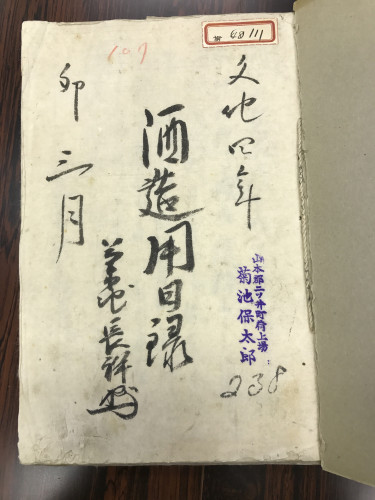 文化四年
酒造用目録
卯三月
長祥
山本郡二ツ井町荷上場
菊池保太郎
238
107